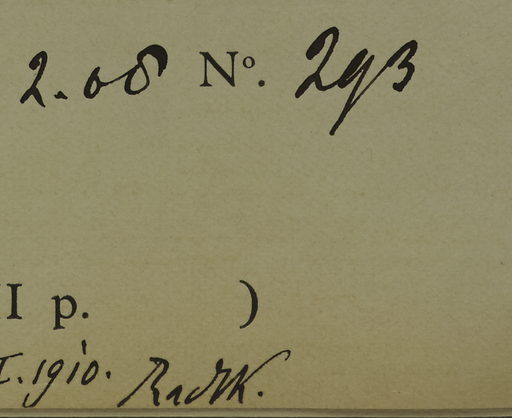 2.08 Nº. 293
I p. )
I.1910. Radlk.